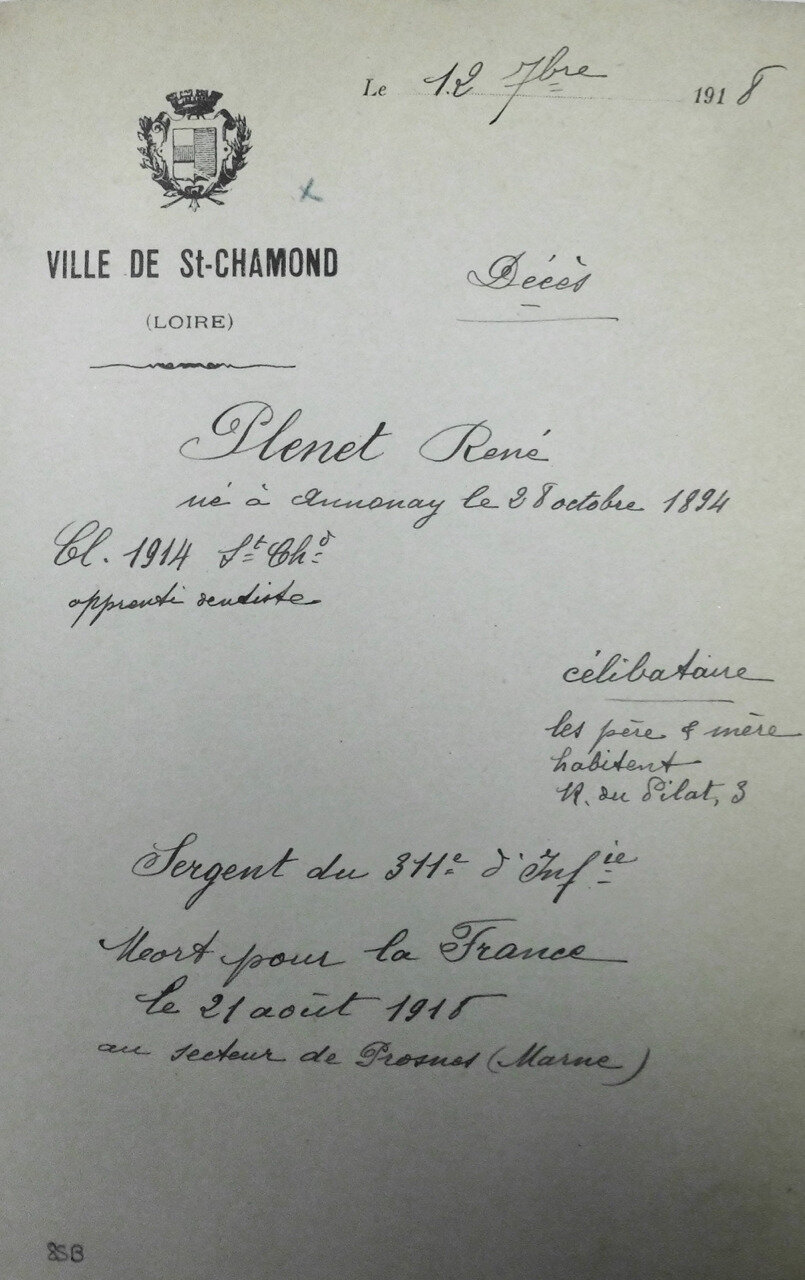 Le 12 7bre 1918
VILLE DE St-CHAMOND
(LOIRE)
Décès
Plenet René
né à Annonay le 28 octobre 1894
Cl. 1914 St Chd
apprenti dentiste
célibataire
les père & mère
habitent
R. du Pilat, 3
Sergent du 311e d'Infie
Mort pour la France
le 21 août 1918
au secteur de Prosnes (Marne)
8SB